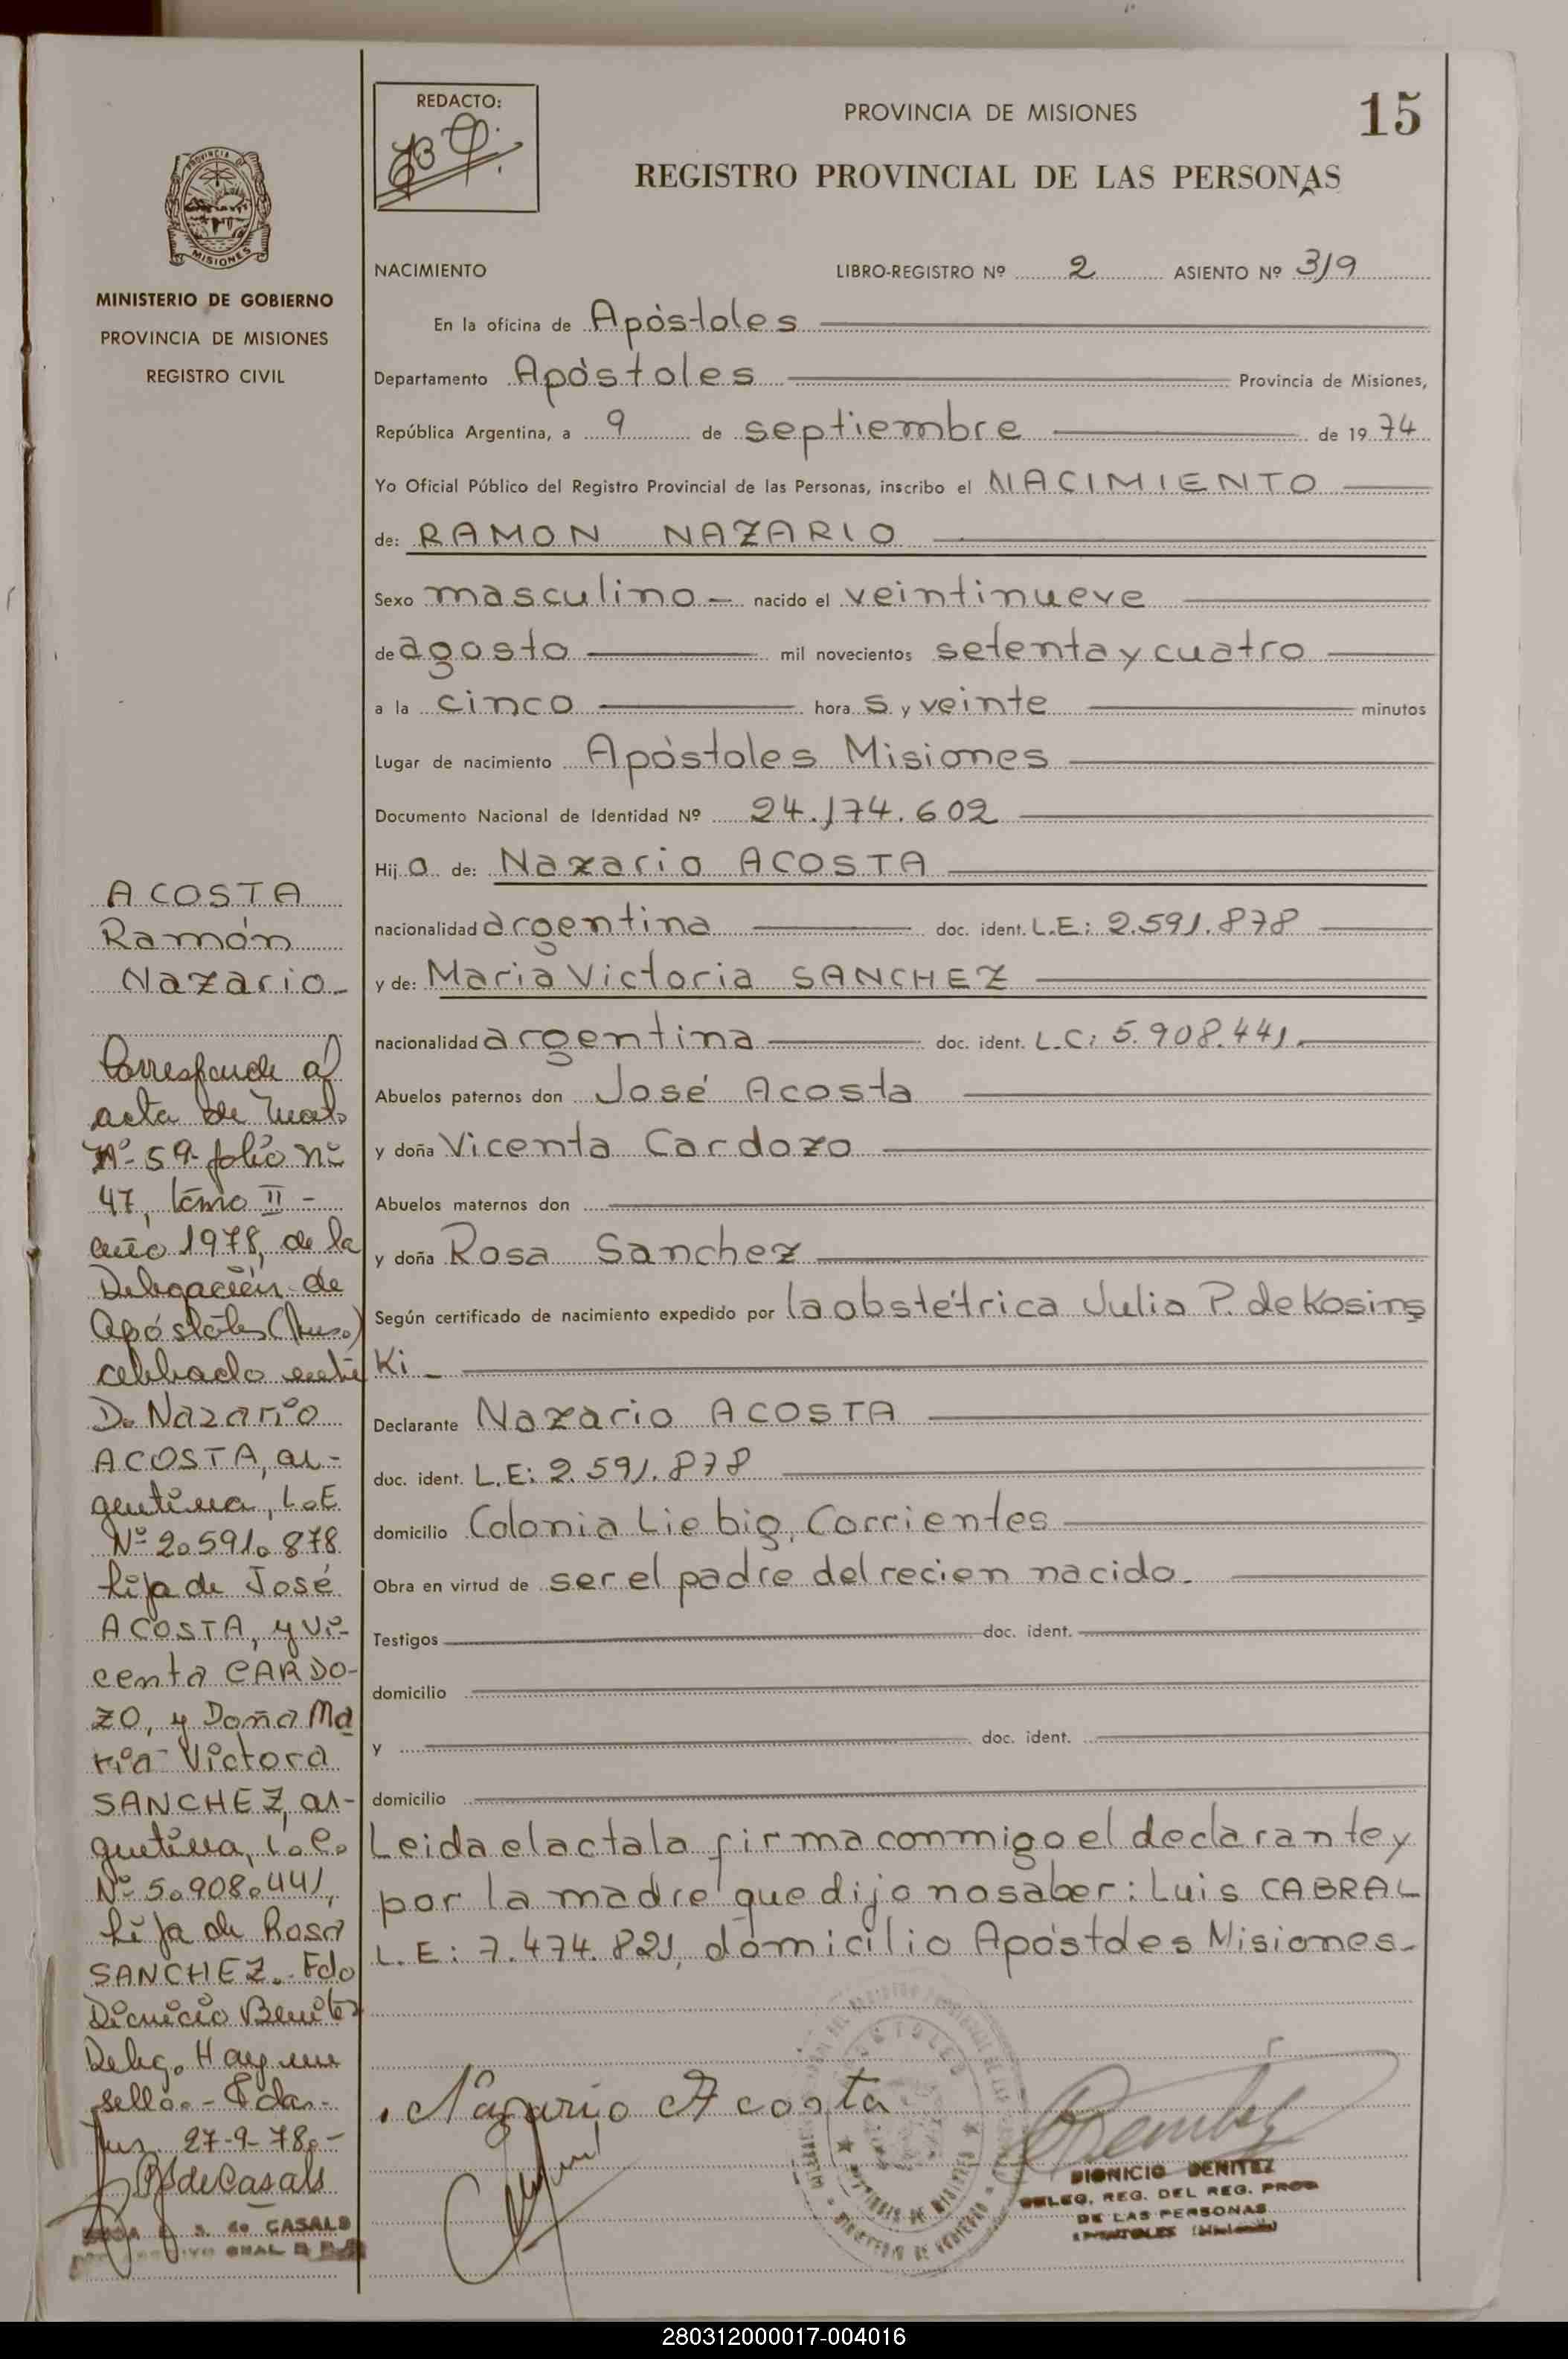 REDACTO:
PROVINCIA DE MISIONES
15
REGISTRO PROVINCIAL DE LAS PERSONAS
MISIONES
MINISTERIO DE GOBIERNO
PROVINCIA DE MISIONES
REGISTRO CIVIL
NACIMIENTO LIBRO-REGISTRO Nº 2 ASIENTO Nº 319
En la oficina de Apóstoles
Departamento Apóstoles Provincia de Misiones,
República Argentina, a 9 de septiembre de 1974
Yo Oficial Público del Registro Provincial de las Personas, inscribo el NACIMIENTO
de: RAMON NAZARIO
Sexo masculino - nacido el veintinueve
de agosto mil novecientos setenta y cuatro
a la cinco hora s y veinte minutos
Lugar de nacimiento Apóstoles Misiones
Documento Nacional de Identidad Nº 24.174.602
Hij o de: Nazario ACOSTA
nacionalidad argentina doc. ident. L.E: 2.591.878
y de: Maria Victoria SANCHEZ
nacionalidad argentina doc. ident. L.C: 5.908.441.
Abuelos paternos don José Acosta
y doña Vicenta Cardozo
Abuelos maternos don
y doña Rosa Sanchez
Según certificado de nacimiento expedido por la obstétrica Julia P. de Kosins
Ki -
Declarante Nazario ACOSTA
doc. ident. L.E: 2.591.878
domicilio Colonia Liebig, Corrientes
Obra en virtud de ser el padre del recien nacido.
Testigos doc. ident.
domicilio
y doc. ident.
domicilio
Leida el acta la firma conmigo el declarante y
por la madre que dijo no saber: Luis CABRAL
L.E: 7.474.821, domicilio Apóstoles Misiones-
Nazario Acosta
DIONICIO BENITEZ
DELEG. REG. DEL REG. PROV.
DE LAS PERSONAS
APOSTOLES (Misiones)
ACOSTA
Ramón
Nazario-
Corresponde al
acta de Mat.
Nº 59 folio Nº
47, tomo II -
año 1978, de la
Delegación de
Apóstoles (Mnes.)
celebrado entre
D. Nazario
ACOSTA, ar-
gentino, L.E
Nº 2.591.878
hijo de José
ACOSTA, y Vi-
centa CARDO-
ZO, y Doña Ma
ria Victora
SANCHEZ, ar-
gentina, L.C.
Nº 5.908.441,
hija de Rosa
SANCHEZ.- Fdo
Dionicio Benitez
Deleg. Hay un
sello.-
27-9-78.-
de Casals
de CASALS
280312000017-004016